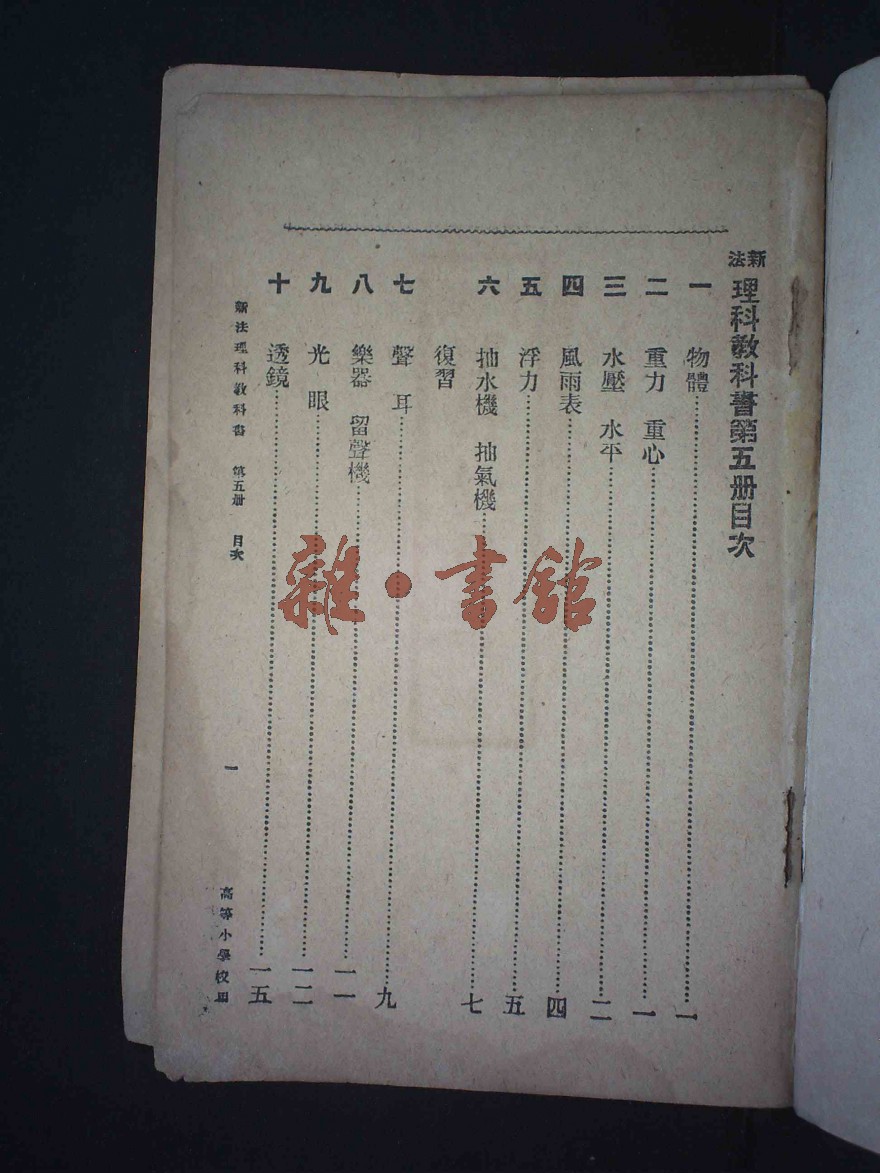 新法理科教科書第五册目次
一 物體……一
二 重力 重心……一
三 水壓 水平……二
四 風雨表……四
五 浮力……五
六 抽水機 抽氣機……七
復習
七 聲 耳……九
八 樂器 留聲機……一一
九 光 眼……一二
十 透鏡……一五
新法理科教科書 第五册 目次 一 高等小學校用
雜·書館